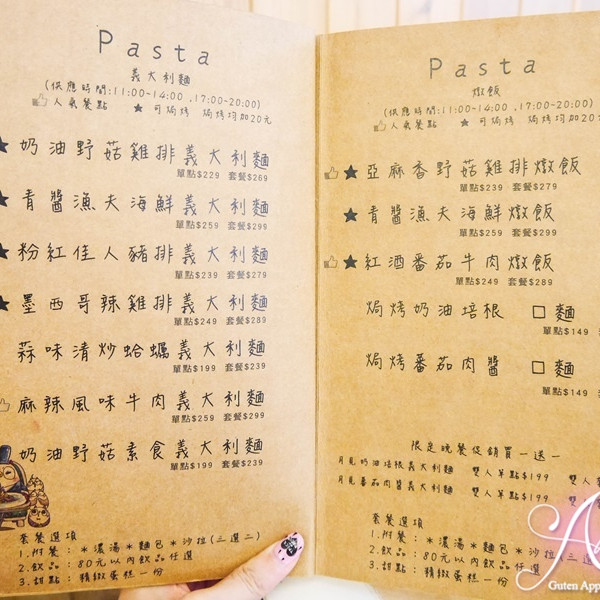 Pasta
義大利麵
(供應時間:11:00-14:00 ,17:00-20:00)
人氣餐點 ★ 可焗烤 焗烤均加20元
★ 奶油野菇雞排義大利麵
單點$229 套餐$269
★ 青醬漁夫海鮮義大利麵
單點$259 套餐$299
★ 粉紅佳人豬排義大利麵
單點$239 套餐$279
★ 墨西哥辣雞排義大利麵
單點$249 套餐$289
蒜味清炒蛤蠣義大利麵
單點$199 套餐$239
麻辣風味牛肉義大利麵
單點$259 套餐$299
奶油野菇素食義大利麵
單點$199 套餐$239
套餐選項
1.附餐:*濃湯*麵包*沙拉(三選二)
2.飲品:80元以內飲品任選
3.甜點:精緻蛋糕一份
Pasta
燉飯
(供應時間:11:00-14:00 ,17:00-20:00)
人氣餐點 ★ 可焗烤 焗烤均加20元
★ 亞麻香野菇雞排燉飯
單點$239 套餐$279
★ 青醬漁夫海鮮燉飯
單點$259 套餐$299
★ 紅酒番茄牛肉燉飯
單點$249 套餐$289
焗烤奶油培根 □麵
單點$149
焗烤番茄肉醬 □麵
單點$149
限定晚餐促銷買一送一
月見奶油培根義大利麵 雙人單點$199 雙人
月見番茄肉醬義大利麵 雙人單點$199 雙人
套餐選項
1.附餐:*濃湯*麵包*沙拉(三選
2.飲品:80元以內飲品任選
3.甜點:精緻蛋糕一份
Guten App